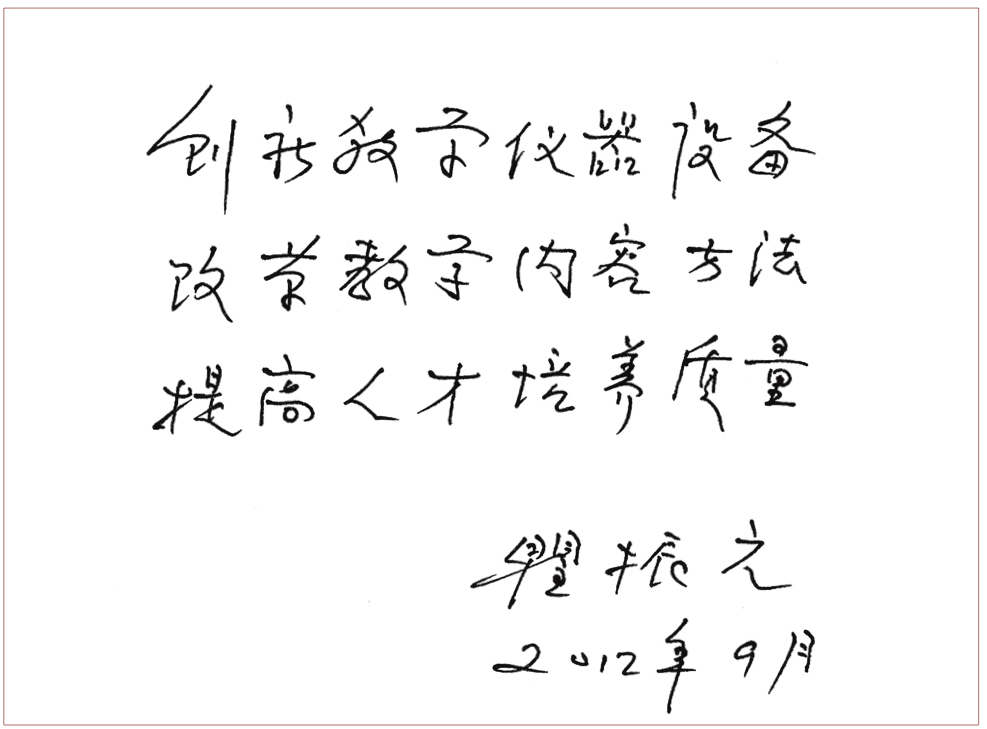 创新教学仪器设备
改革教学内容方法
提高人才培养质量
瞿振元
2012年9月